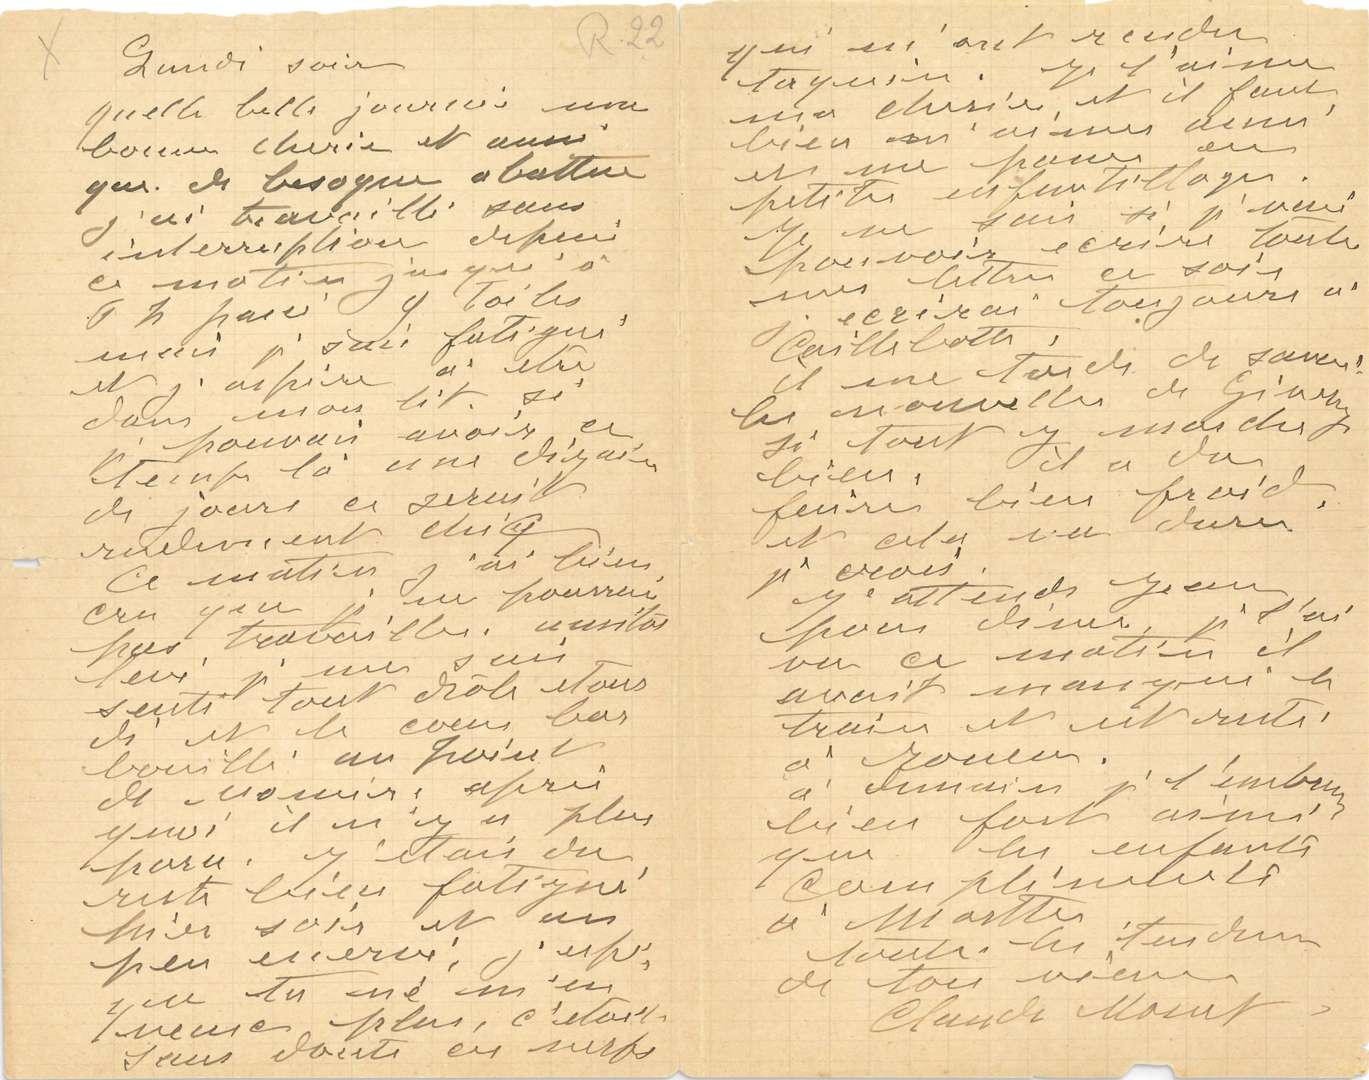 R.22
Lundi soir
quelle belle journée ma
bonne cherie et aussi
que de besogne abattue
j'ai travaillé sans
interruption depuis
ce matin jusqu'à
6 h passé 9 toiles
mais je suis fatigué
et j'aspire à être
dans mon lit. si
je pouvais avoir ce
temps là une dizaine
de jours ce serait
rudement chic
Ce matin j'ai bien
cru que je ne pourrais
pas travailler. aussitôt
levé je me suis
senti tout drôle etour
di et le coeur bar
bouillé au point
de vomir. après
quoi il n'y a plus
paru. j'étais du
reste bien fatigué
hier soir et un
peu enervé, j'espère
que tu ne m'en
veux plus, c'était
sans doute ces nerfs
qui m'ont rendu
taquin. je t'aime
ma cherie, et il faut
bien m'aimer aussi
en me passant
petits enfantillages.
je ne sais si je vais
pouvoir ecrire toutes
mes lettres ce soir
j'ecrirai toujours à
Caillebotte,
il me tarde de savoir
les nouvelles de Giverny
si tout y marche
bien, il a du
faire bien froid,
et cela va durer
je crois.
j'attends Jean
pour diner, je l'ai
vu ce matin il
avait manqué le
train et est resté
à Rouen.
à demain je t'embrasse
bien fort ainsi
que les enfants
Compliments
à Marthe
toutes les tendresses
de ton vieux
Claude Monet